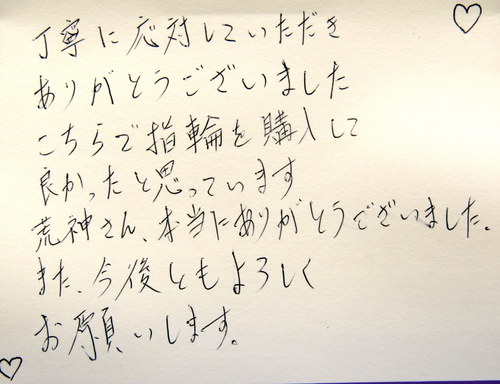 丁寧に応対していただき
ありがとうございました
こちらで指輪を購入して
良かったと思っています
荒神さん、本当にありがとうございました。
また、今後ともよろしく
お願いします。